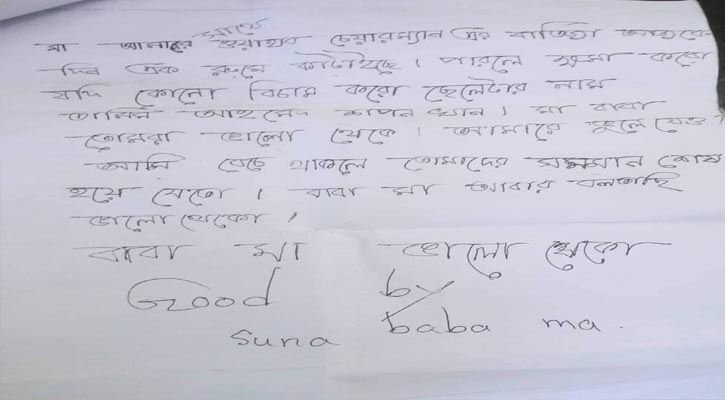 সাথে
মা আমার ওয়াহাব চেয়ারম্যান এর
দিন এক রুমে কাটাইছে। পারলে ক্ষমা করো
যদি কোনো বিচার করো ছেলেটার নাম
আহমেদ খান। মা বাবা
তোমরা ভালো থেকো। আমারে ভুলে যেও
আমি বেচে থাকলে তোমাদের সম্মান শেষ
হয়ে যেতো। বাবা মা আবার বলতাছি
ভালো থেকো।
বাবা মা ভালো থেকো
Good by
suna baba ma.